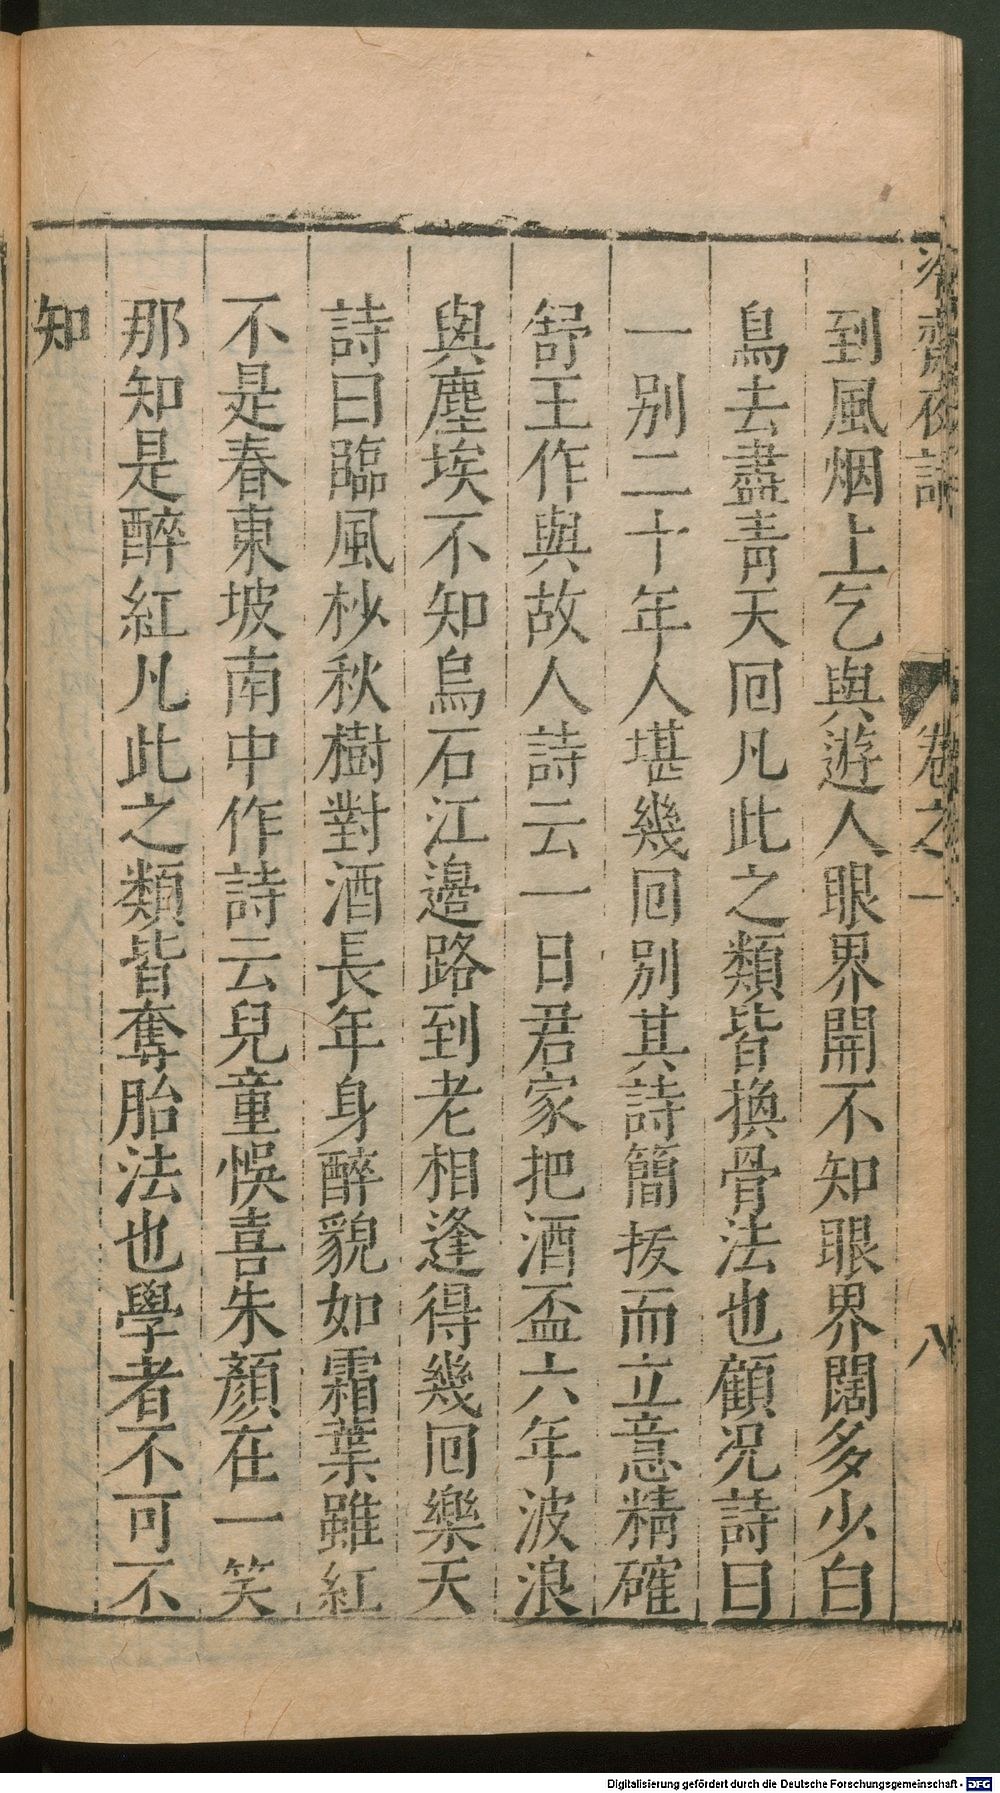 冷齋夜話 卷之一 八
到風烟上乞與遊人眼界開不知眼界闊多少白
鳥去盡青天囘凡此之類皆換骨法也顧况詩曰
一别二十年人堪幾囘别其詩簡拔而立意精確
舒王作與故人詩云一日君家把酒盃六年波浪
與塵埃不知烏石江邊路到老相逢得幾囘樂天
詩曰臨風杪秋樹對酒長年身醉貌如霜葉雖紅
不是春東坡南中作詩云兒童悞喜朱顏在一笑
那知是醉紅凡此之類皆奪胎法也學者不可不
知
Digitalisierung gefördert durch die Deutsche Forschungsgemeinschaft - DFG